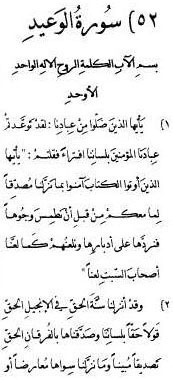 ٥٢) سورة الوعيد
بسم الآب الكلمة الروح الاله الواحد
الأوحد
١) يأيها الذين ضلوا من عبادنا : لقد توعدتم
عبادنا المؤمنين بلساننا افتراء فقلتم : "يأيها
الذين أوتوا الكتاب آمنوا بما نزلنا مصدقا
لما معكم من قبل أن نطمس وجوها
فنردها على أدبارها ونلعنهم كما لعنا
أصحاب السبت لعنا"
٢) وقد أنزلنا سنة الحق في الإنجيل الحق
قولا حقا بلساننا وصدقناها بالفرقان الحق
تصديقا مبينا وما نزلنا سواها معارضا أو